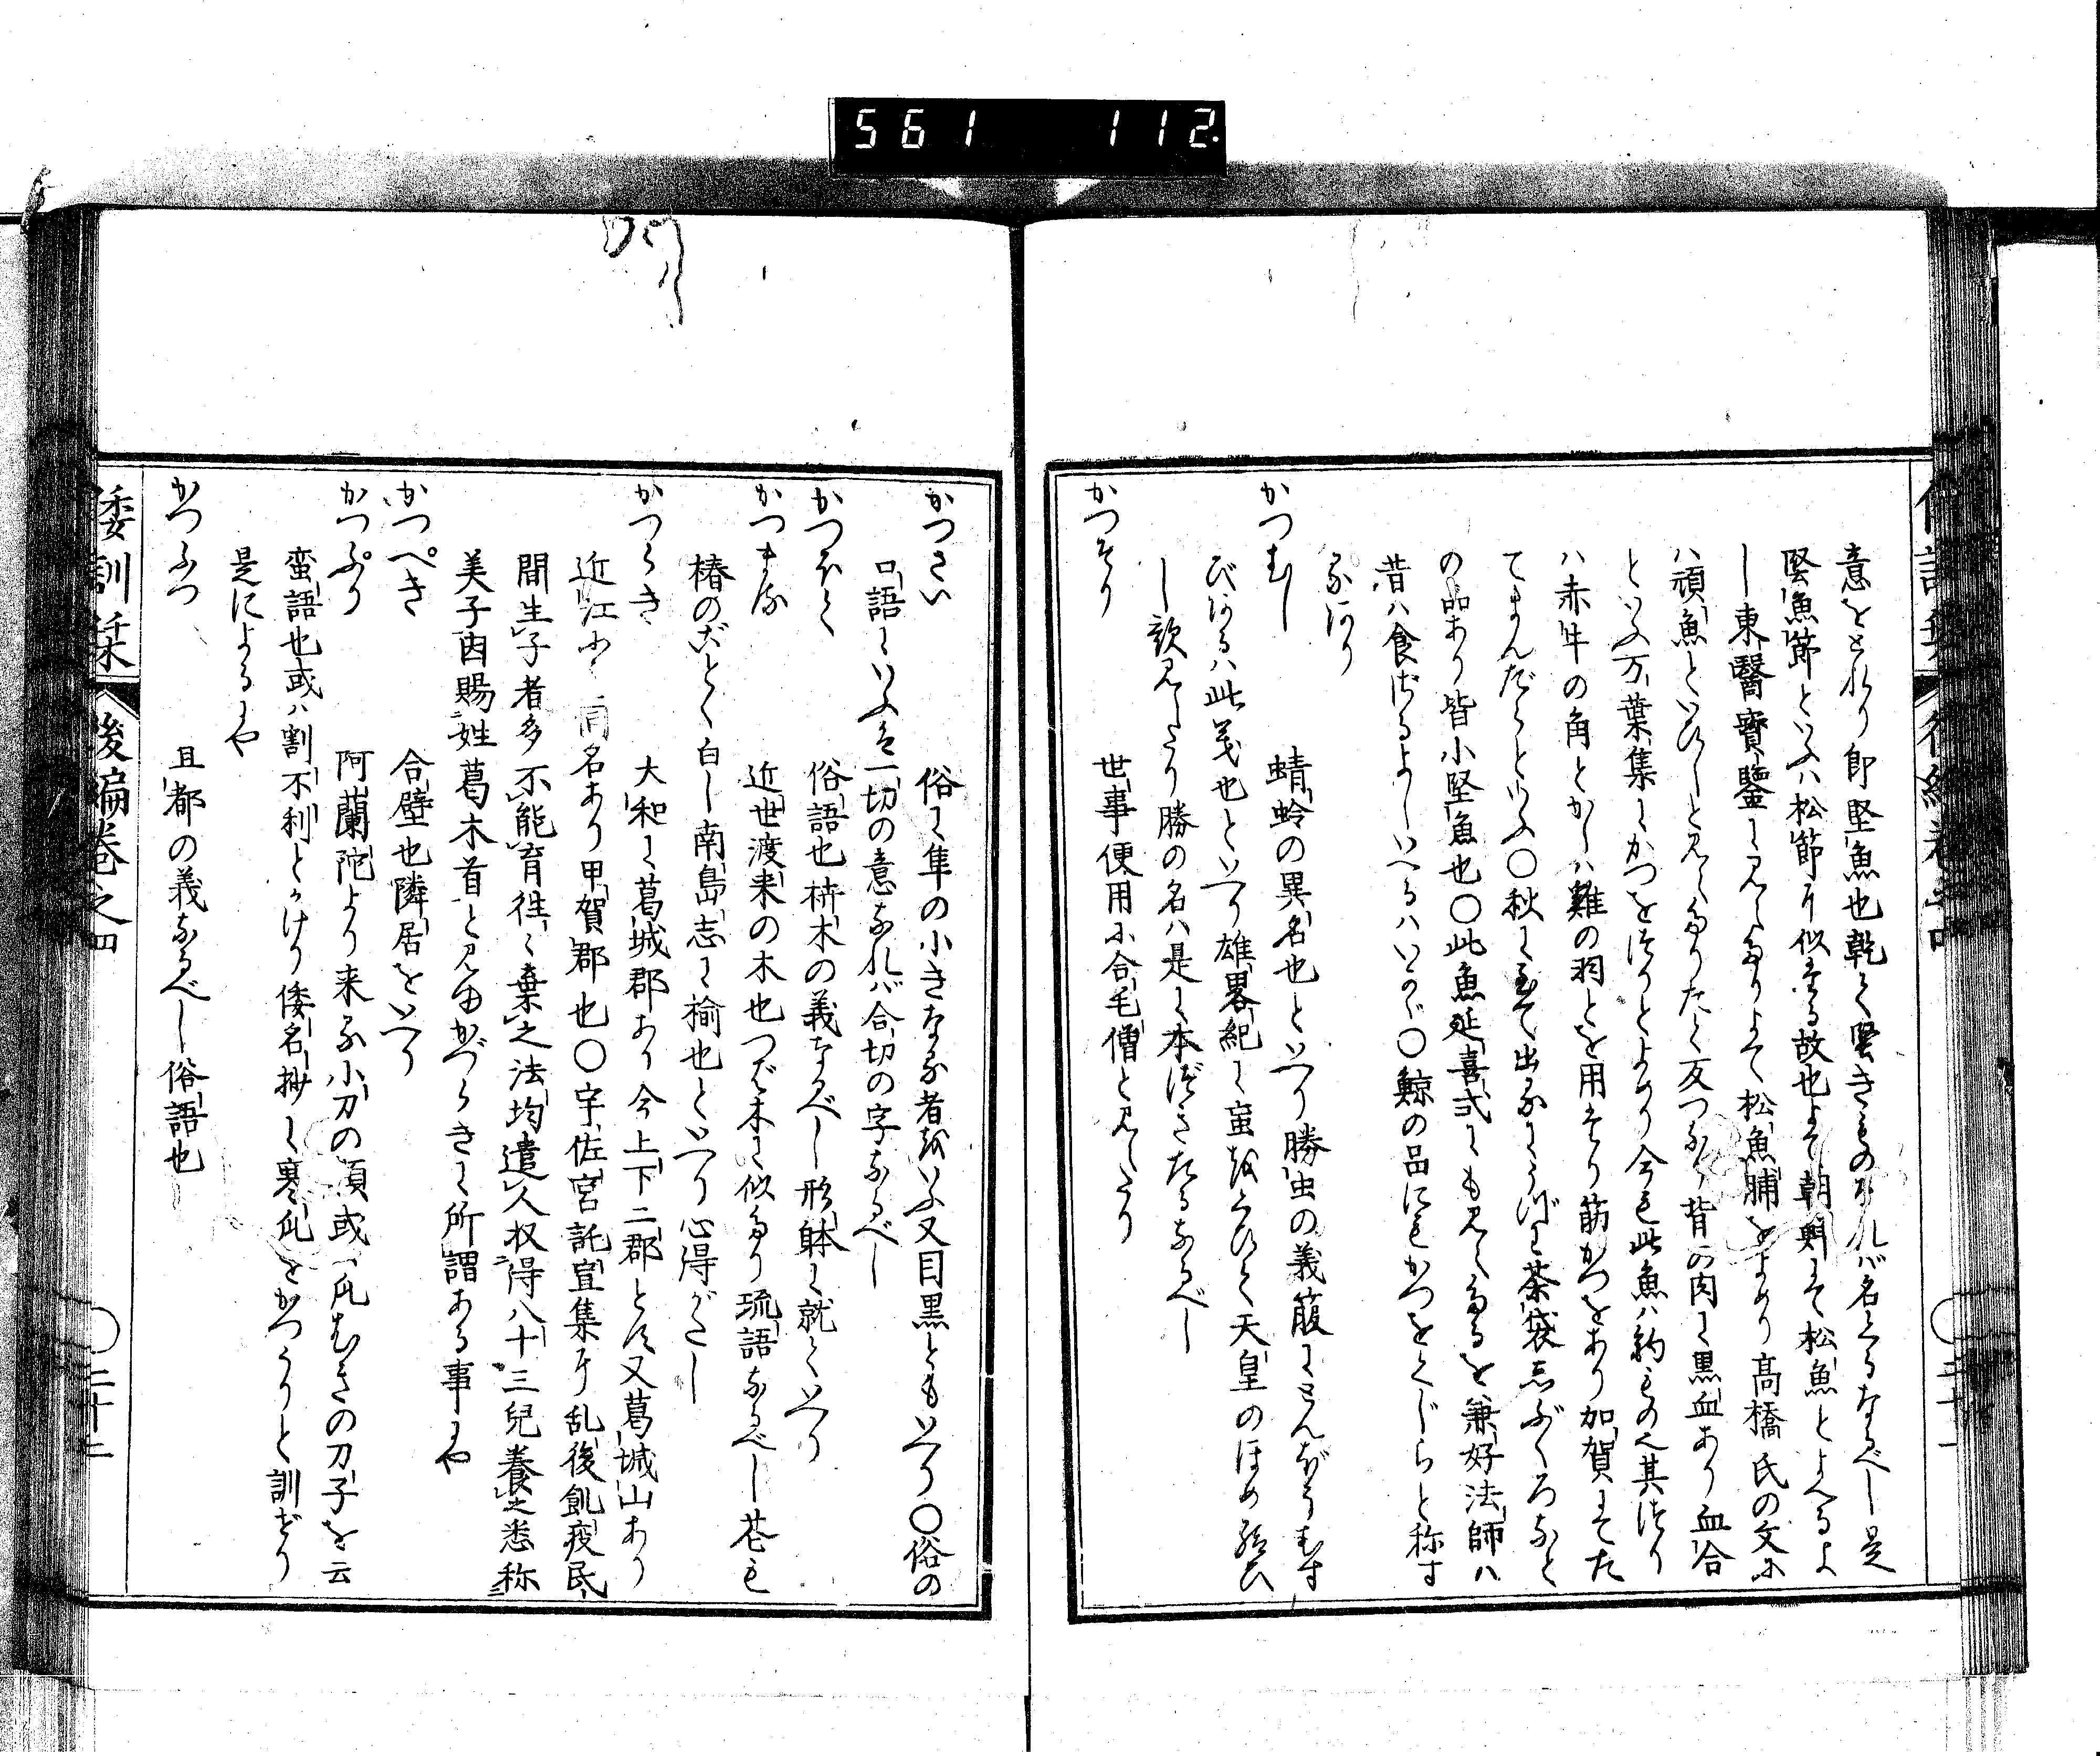 561 112
意をとれり即堅魚也乾て堅きものなれバ名くるなるべし是
堅魚節といふハ松節に似たる故也よて朝鮮にて松魚とよべるよ
し東醫寶鑒に見えたりよて松魚脯をよめり高橋氏の文に
ハ頑魚といひしと見えたりたく反つ也背の肉に黒血あり血合
といふ万葉集にかつをつりとよめり今も此魚ハ釣もの也其つり
ハ赤牛の角とかしハ雞の羽とを用たり筋かつをあり加賀にてた
てまんだらといふ〇秋に至て出るにうづわ茶袋志ぶくろなと
の品あり皆小堅魚也〇此魚延喜式にも見えたるを兼好法師ハ
昔ハ食ざるよしいへるハいかゞ〇鯨の品にもかつをくじらと称す
るあり
かつむし 蜻蛉の異名也といへり勝虫の義箙にとんばうむす
びあるハ此義也といへり雄畧紀に虽をくひて天皇のほめ給ひ
し歌見えたり勝の名ハ是に本づきたるなるべし
かつそり 世事便用に合毛僧と見えたり
かつさい 俗に隼の小きなる者をいふ又目黒ともいへり〇俗の
口語にいふも一切の意なれバ合切の字なるべし
かつほく 俗語也枿木の義なるべし形躰に就ていへり
かつまる 近世渡来の木也つバ木に似たり琉語なるべし花も
椿のごとく白し南島志に楡也といへり心得がたし
かつらき 大和に葛城郡あり今上下二郡とす又葛城山あり
近江にも同名あり甲賀郡也〇宇佐宮託宣集に乱後飢疫民
間生子者多不能育往々棄之法均遣人収得八十三兒養之悉称
美子因賜姓葛木首と見ゆかづらきに所謂ある事にや
かつぺき 合壁也隣居をいへり
かつぷり 阿蘭陀より来る小刀の頂或ハ爪むきの刀子を云
蛮語也或ハ割不利とかけり倭名抄に寒瓜をかつうりと訓ぜり
是によるにや
かつふつ 且都の義なるべし俗語也
倭訓栞 後編巻之四 〇二十二